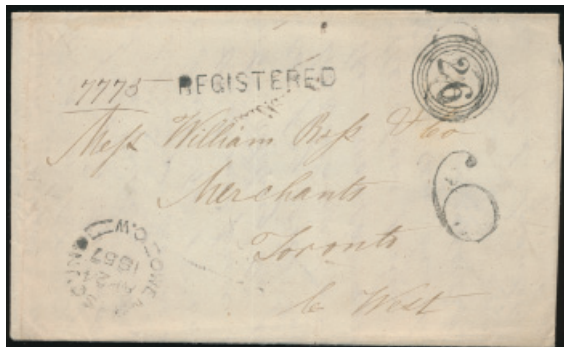 7775 REGISTERED
26
Mess William Ross & Co
6
Merchants
Toronto
C West
OWEN SOUND
C.W
24
1857